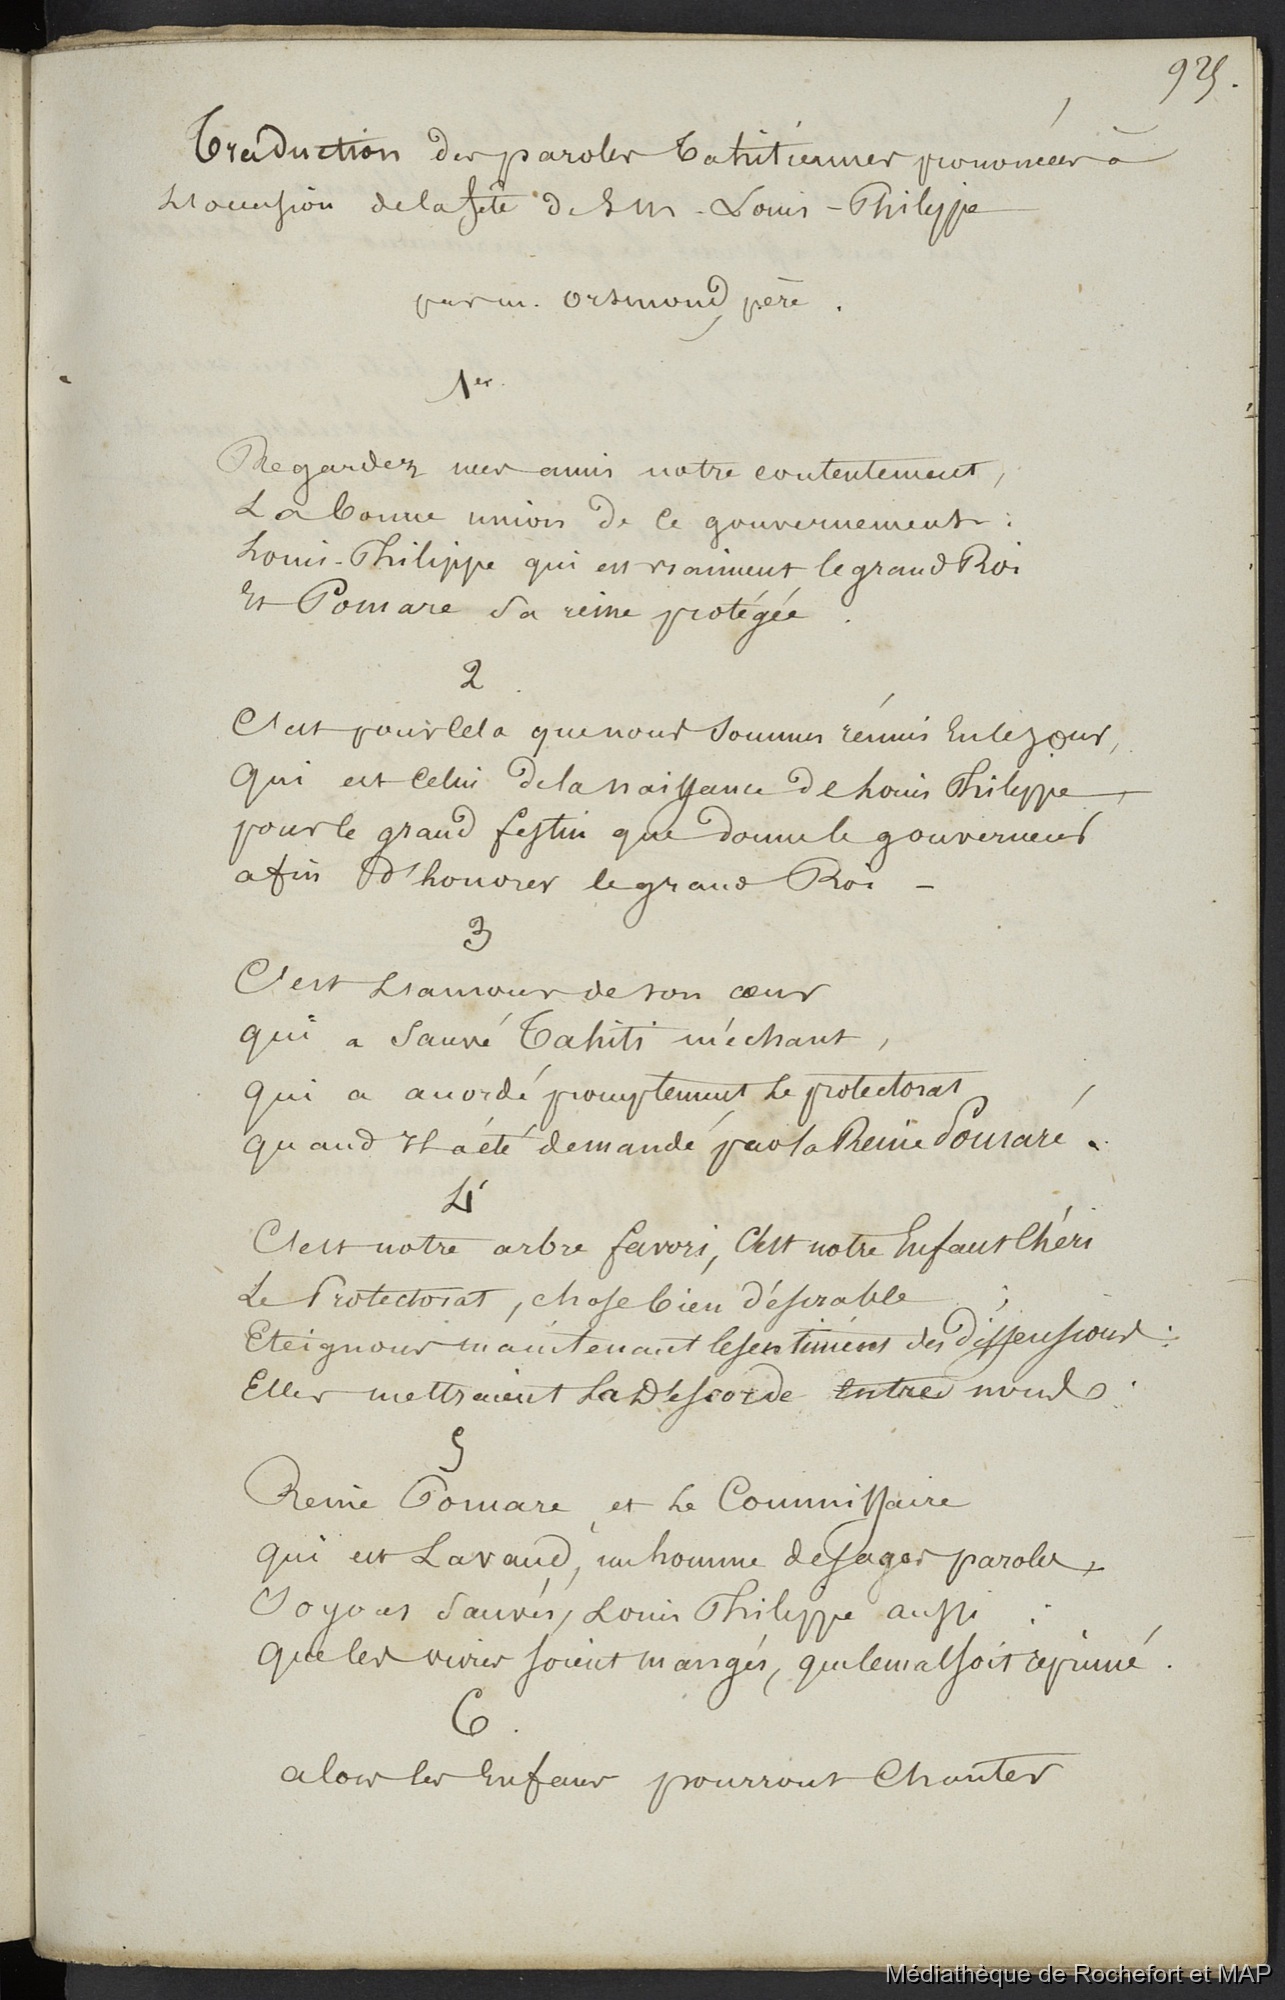 925.
Traduction des paroles Tahitiennes prononcées à
L'occasion de la fête de S M. Louis-Philippe
par m. Orsmond père.
1er
Regardez mes amis notre contentement,
La bonne union de ce gouvernement :
Louis-Philippe qui est vraiment le grand Roi
Et Pomare sa reine protégée.
2
C'est pour cela que nous sommes réunis en ce jour,
qui est celui de la naissance de Louis Philippe
pour le grand festin que donne le gouverneur
afin d'honorer le grand Roi -
3
C'est L'amour de son cœur
qui a Sauvé Tahiti méchant,
qui a accordé promptement Le protectorat
quand Il a été demandé par la Reine Pomaré.
4
C'est notre arbre favori, C'est notre Enfant Chéri
Le Protectorat, chose bien désirable ;
Eteignons maintenant le sentiment des dissensions :
Elles mettraient La Discorde entre nous.
5
Reine Pomare et Le Commissaire
qui est Lavaud, un homme de sages paroles,
Soyons Sauvés, Louis Philippe aussi :
que les vivres soient mangés, que le mal soit réprimé.
6.
alors les Enfans pourront Chanter
Médiathèque de Rochefort et MAP